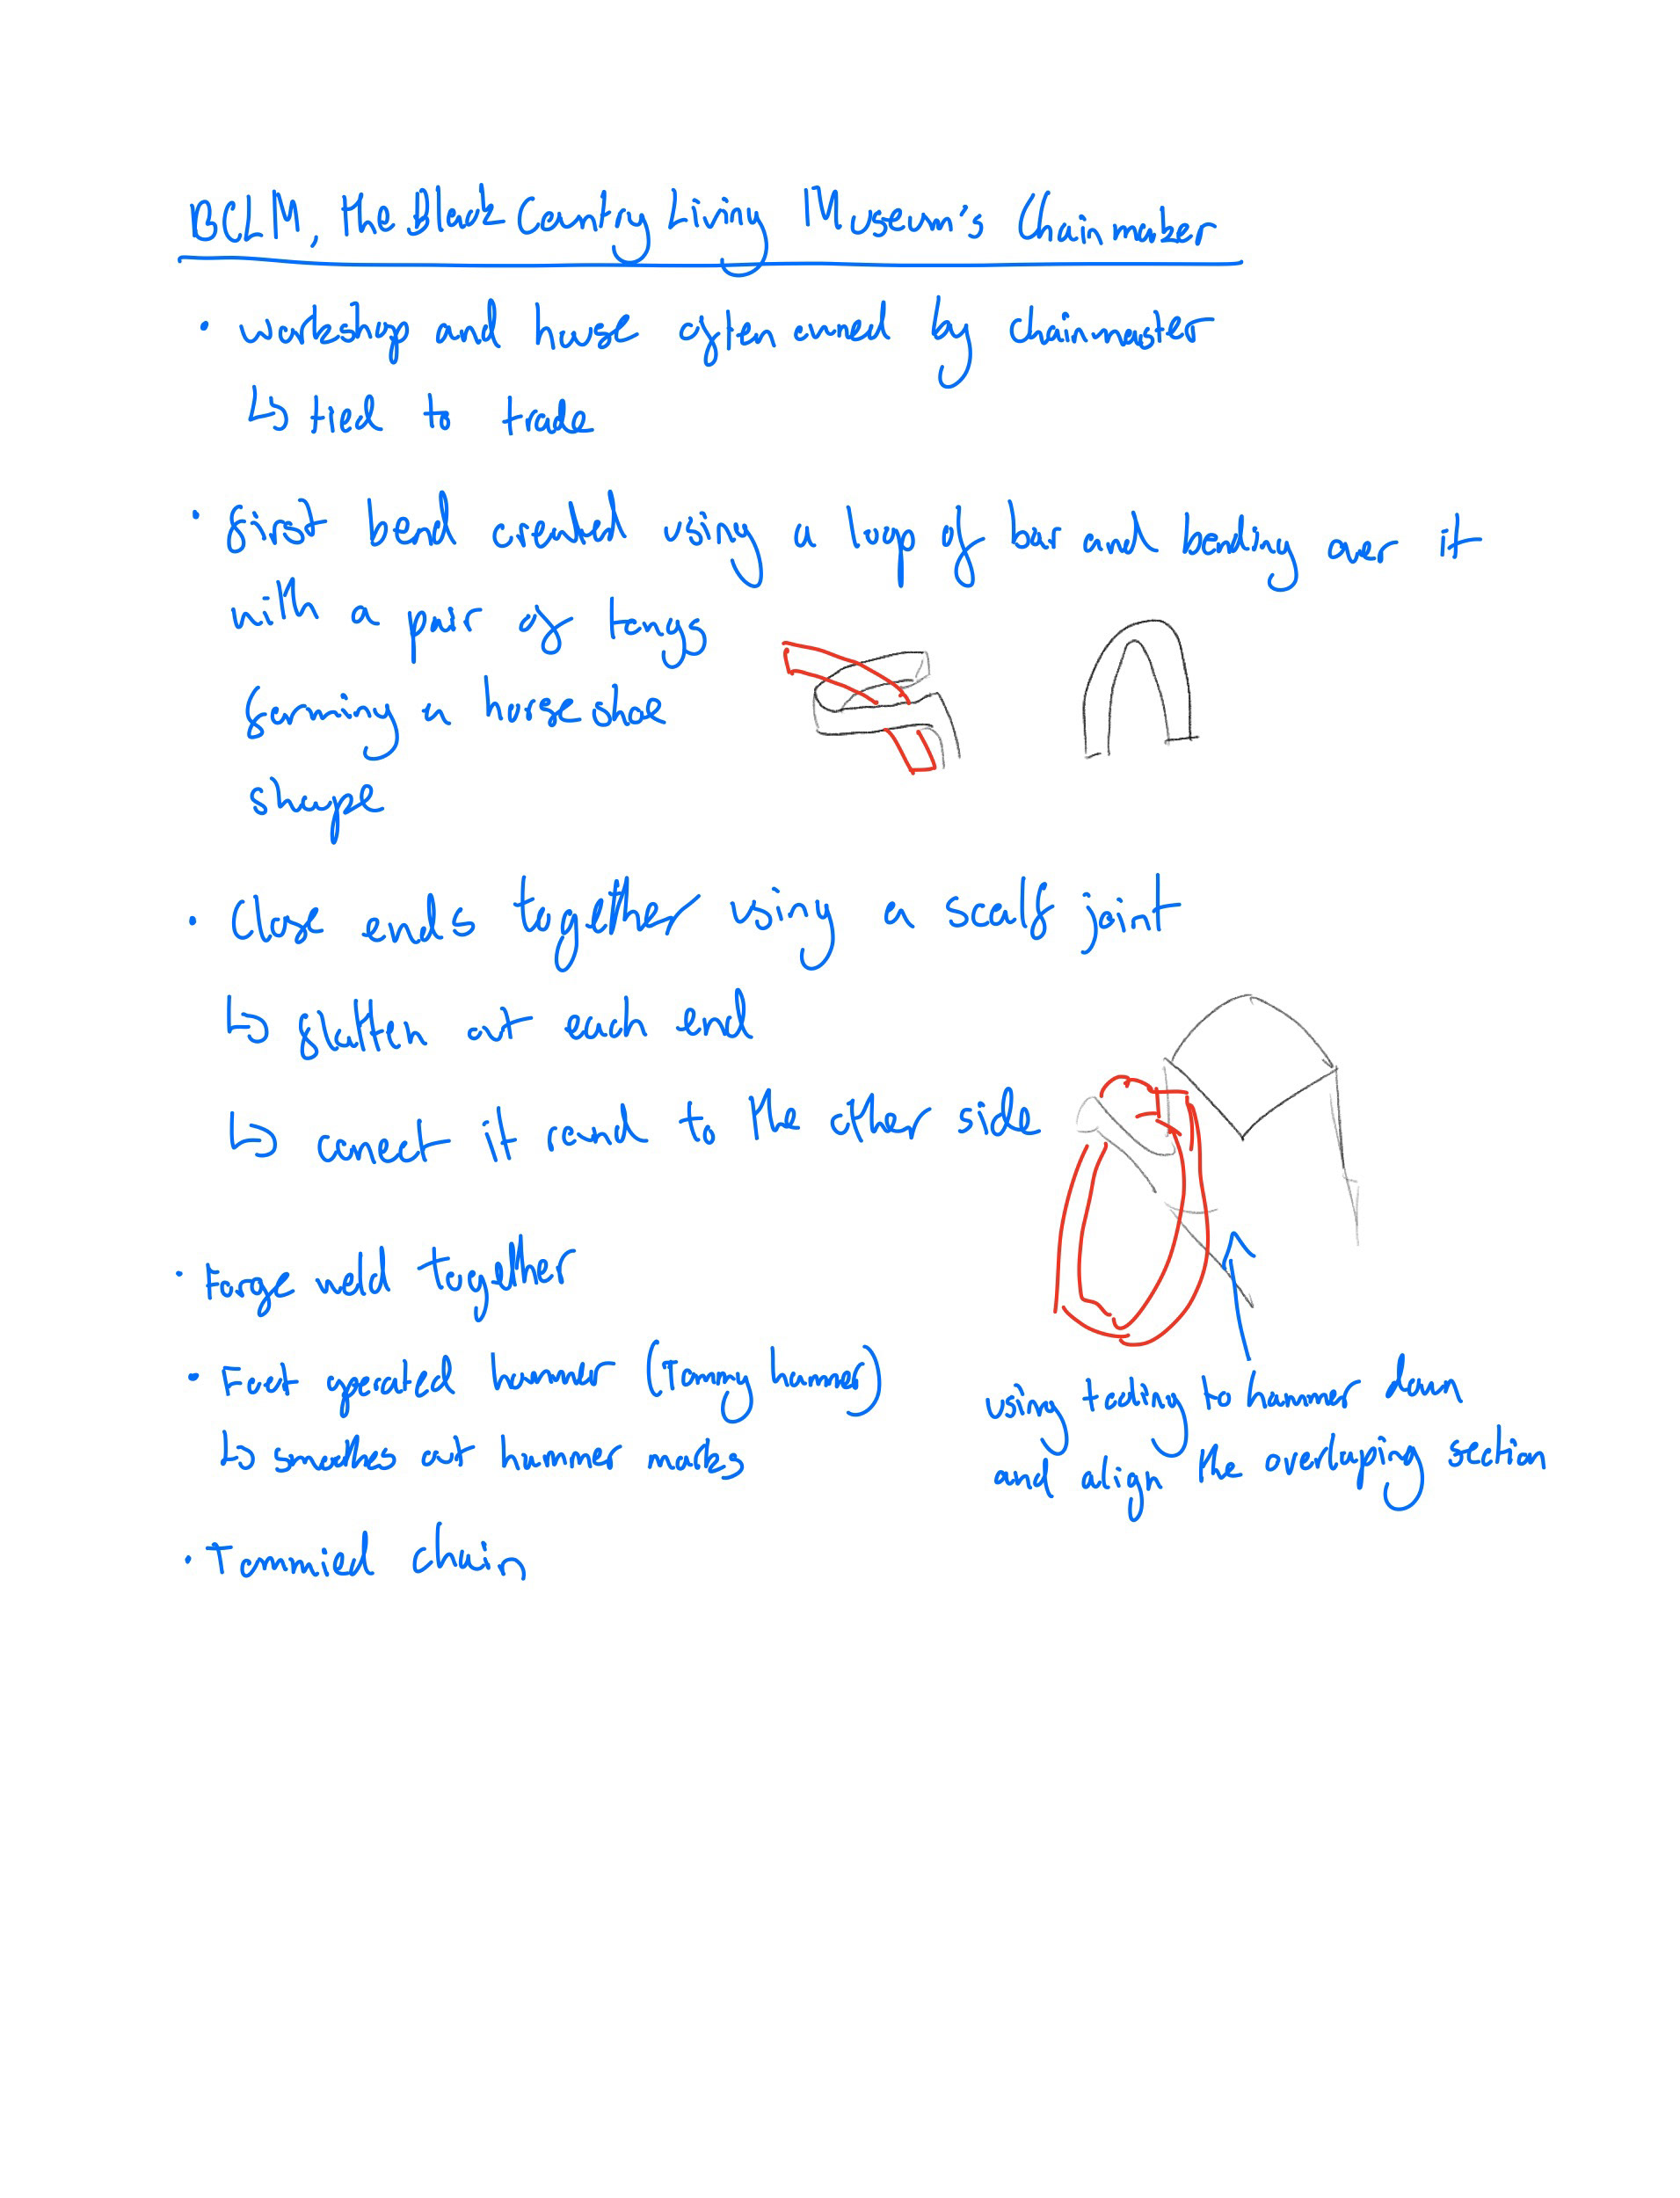 BCLM, the Black Country Living Museum's Chainmaker
• workshop and house often owned by chainmaster
↳ tied to trade
• first bend created using a loop of bar and bending over it
with a pair of tongs
forming a horse shoe
shape
• Close ends together using a scalf joint
↳ flatten at each end
↳ conect it round to the other side
• Forge weld together
• Foot operated hammer (Tommy hammer)
↳ smoothes out hammer marks
using tooling to hammer down
and align the overlaping section
• Tommied chain